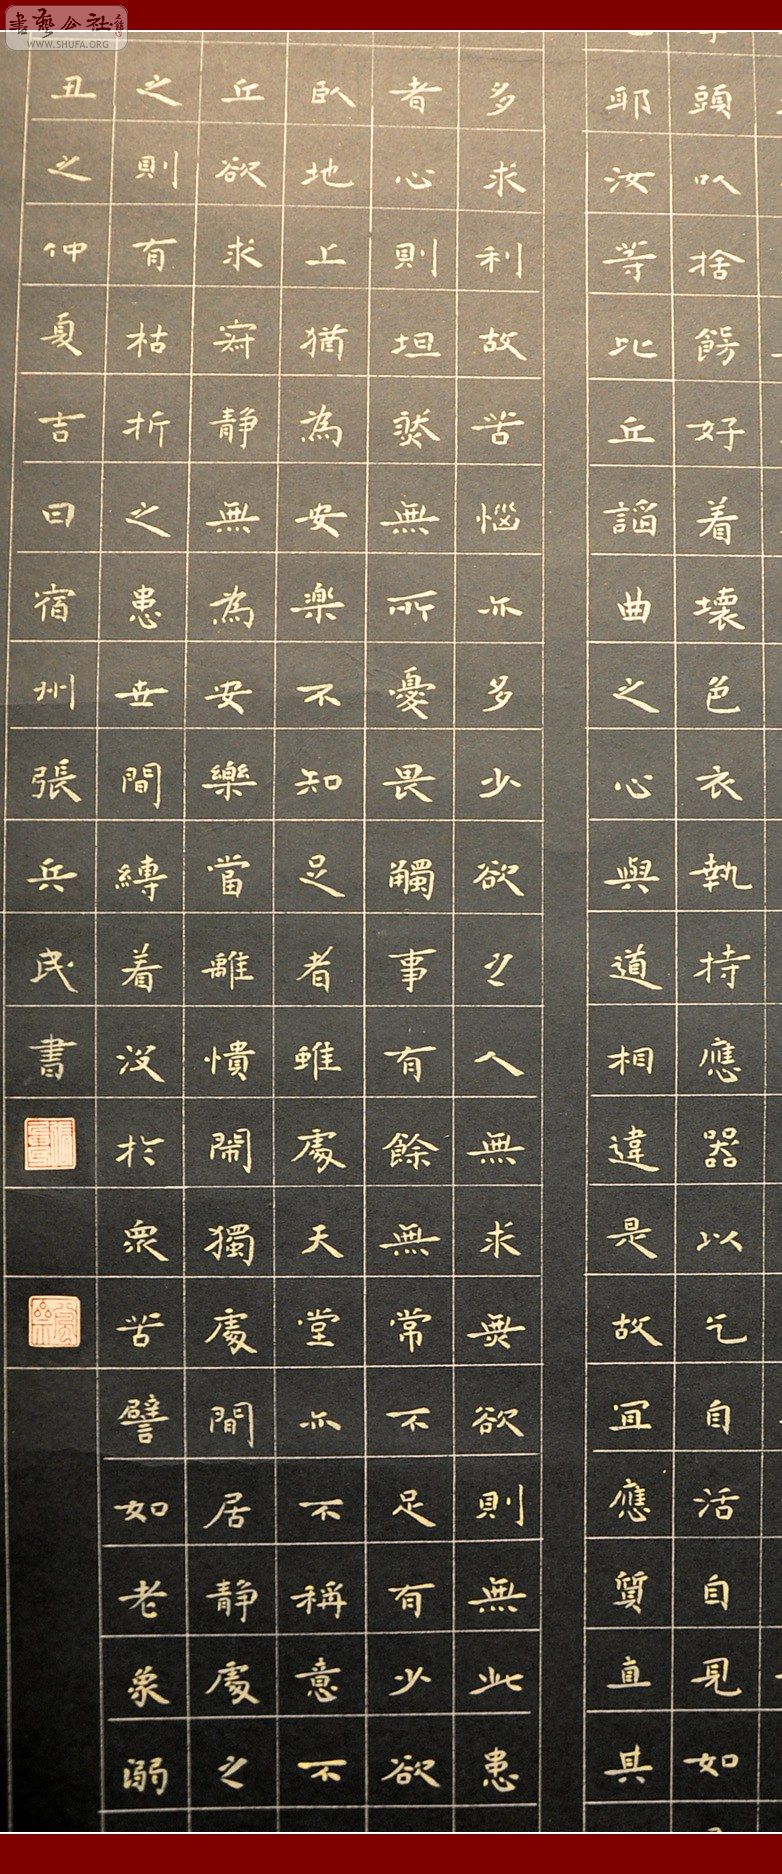 頭以捨餝好着壞色衣執持應器以乞自活自見如
耶汝等比丘謟曲之心與道相違是故宜應質直其
多求利故苦惱亦多少欲之人無求無欲則無此患
者心則坦然無所憂畏觸事有餘無常不足有少欲
臥地上猶為安樂不知足者雖處天堂亦不稱意不
丘欲求寂靜無為安樂當離憒閙獨處間居靜處之
之則有枯折之患世間縛着没於眾苦譬如老象溺
丑之仲夏吉日宿州張兵民書
書藝公社
WWW.SHUFA.ORG